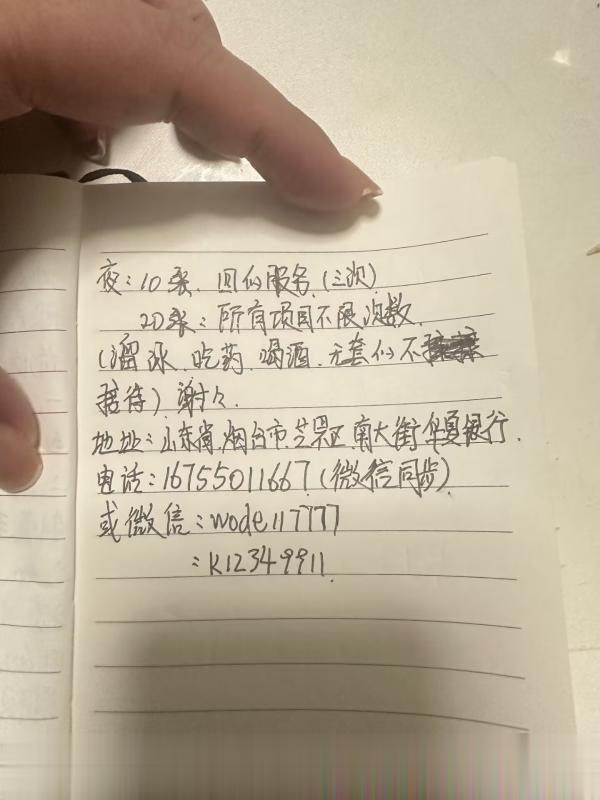 夜：10张、回似服务(三次)
20张：所有项目不限次数
(溜冰、吃药、喝酒、无套似不
接待)谢谢.
地址：山东省、烟台市、芝罘区、南大街华夏银行.
电话：16755011667(微信同步)
或微信：wode117777
：K12349911.